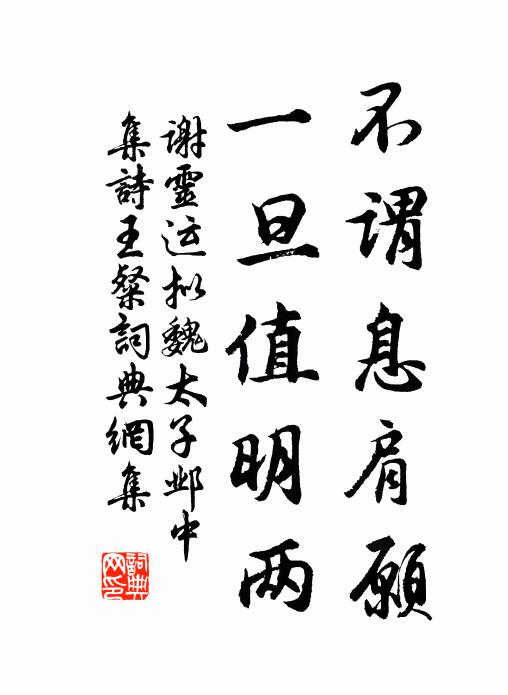 不谓息肩願
一旦值明两
谢靈运拟魏太子邺中
集詩王粲詞典網集
詞典
网印